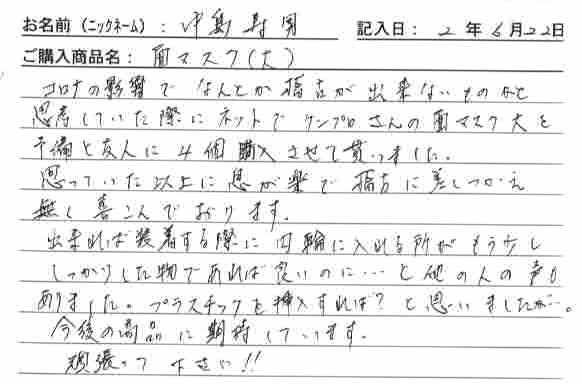 お名前（ニックネーム）：中島寿男　記入日：2年6月22日
ご購入商品名：面マスク(大)
コロナの影響でなんとか稽古が出来ないものかと
思考していた際にネットでワンプロさんの面マスク大を
予備と友人に4個購入させて貰いました。
思っていた以上に息が楽で稽古に差しつかえ
無く喜こんでおります。
出来れば装着する際に内輪に入れる所がもう少し
しっかりした物であれば良いのに…と他の人の声も
ありました。プラスチックを挿入すれば？と思いましたが…。
今後の商品に期待しています。
頑張って下さい!!